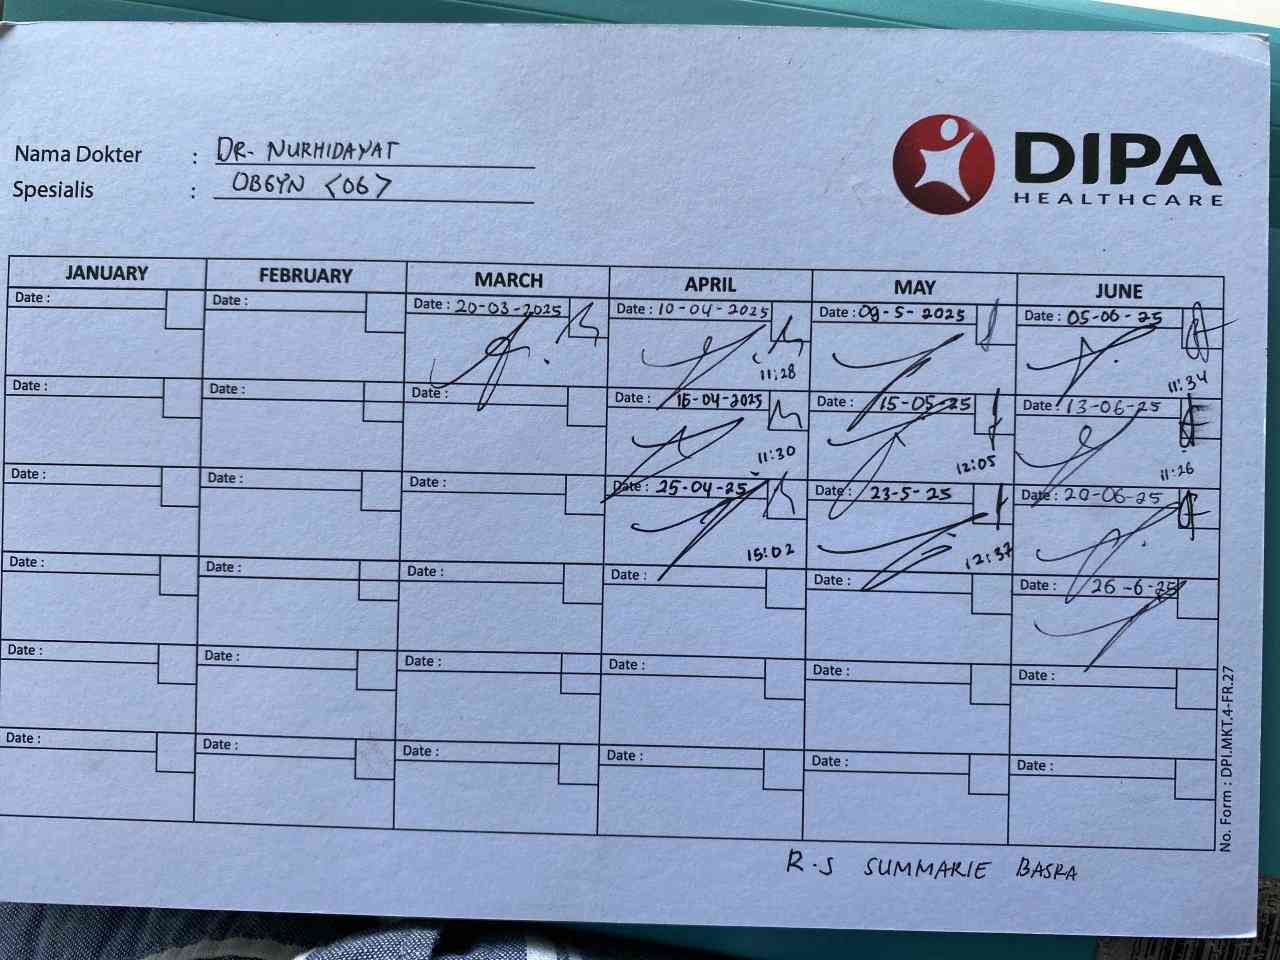 DIPA
HEALTHCARE
Nama Dokter : DR- NURHIDAYAT
Spesialis : OBGYN <06>
JANUARY FEBRUARY MARCH APRIL MAY JUNE
Date : Date : Date : 20-03-2025 Date : 10-04-2025 Date : 09-5-2025 Date : 05-06-25
11:28 11:34
Date : Date : Date : Date : 15-04-2025 Date : 15-05-25 Date : 13-06-25
11:30 12:05 11:26
Date : Date : Date : Date : 25-04-25 Date : 23-5-25 Date : 20-06-25
15:02 12:37
Date : Date : Date : Date : Date : Date : 26-6-25
Date : Date : Date : Date : Date : Date :
Date : Date : Date : Date : Date : Date :
No. Form : DPI.MKT.4-FR.27
R.S SUMMARIE BASRA